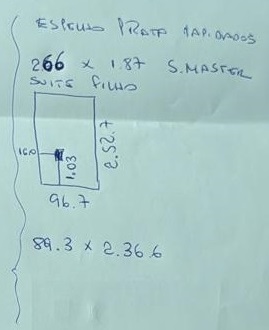 ESPELHO PRATA LAPIDADOS
266 x 1.87 S.MASTER
SUITE FILHO
16.0
1.03
2.52.7
96.7
89.3 x 2.36.6